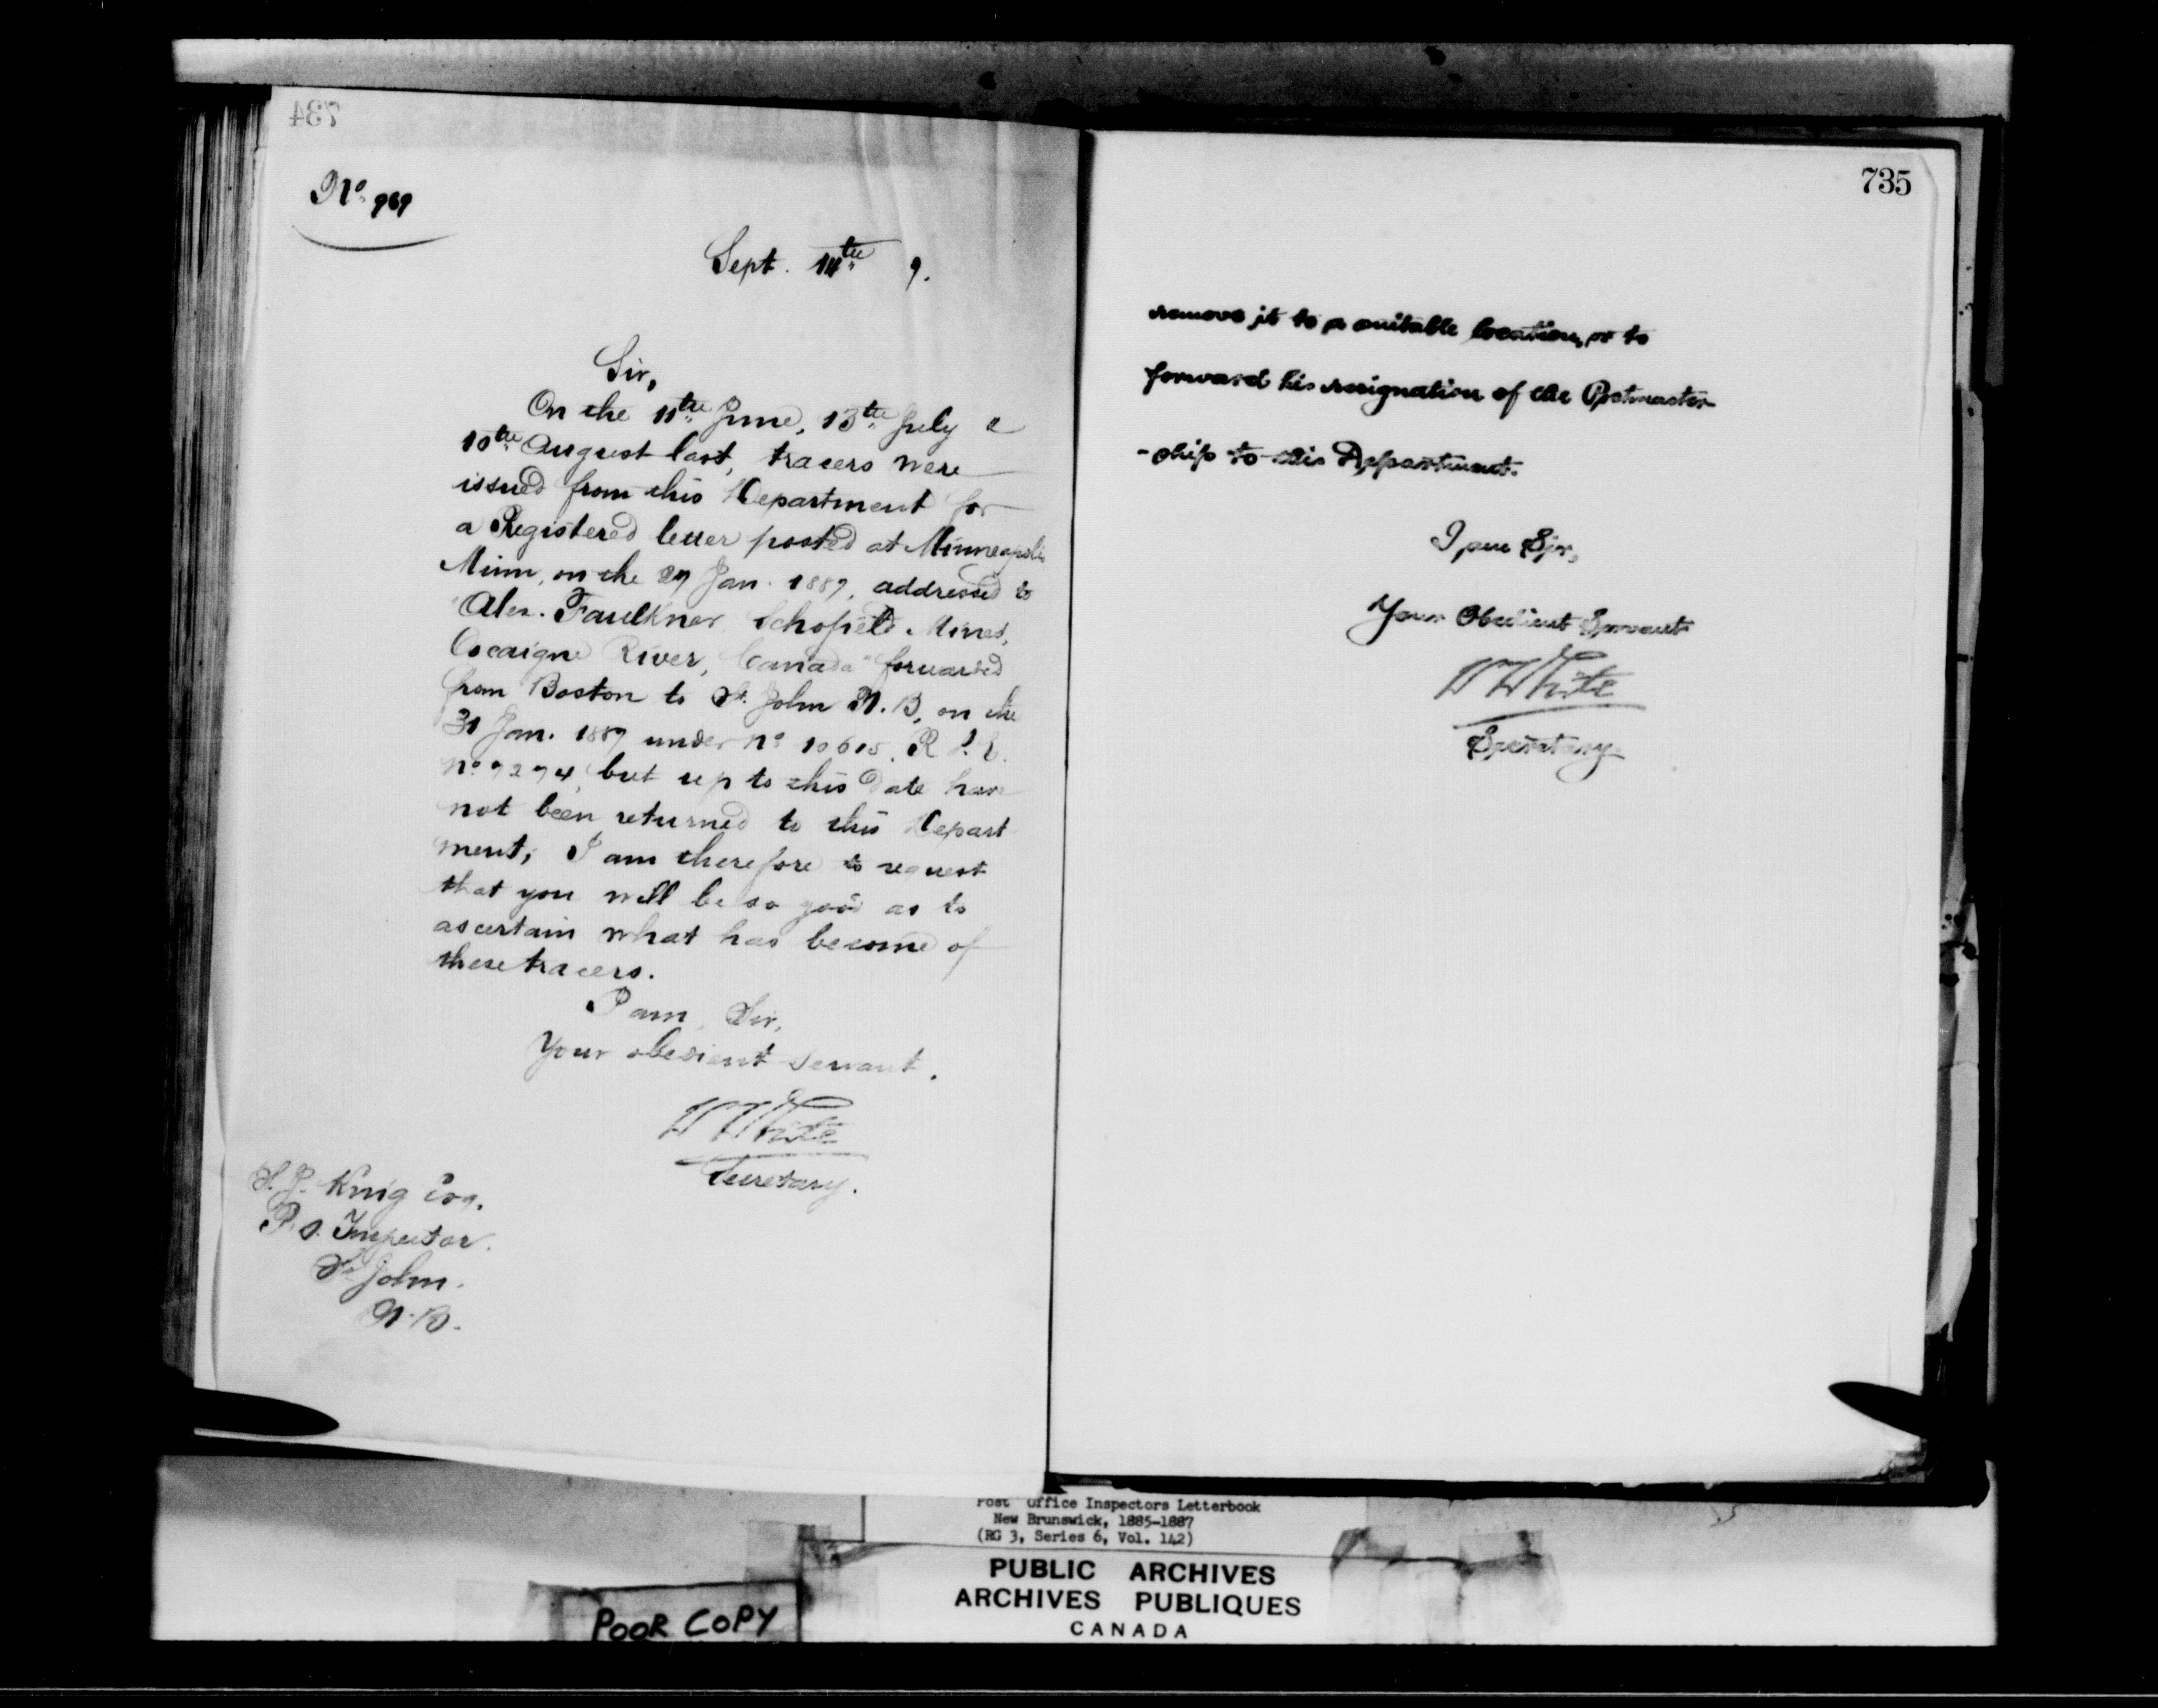 734
No. 969
Sept. 14th 7.
Sir,
On the 11th June, 13th July &
10th August last, tracers were
issued from this Department for
a Registered letter posted at Minneapolis
Minn, on the 27 Jan. 1887, addressed to
"Alex. Faulkner Schofield Mines,
Cocaigne River, Canada" forwarded
from Boston to St. John N.B, on the
31 Jan. 1887 under no 10615. R.P.E.
no 7274, but up to this date have
not been returned to this Depart
ment; I am therefore to request
that you will be so good as to
ascertain what has become of
these tracers.
I am, Sir,
Your obedient servant.
W White
Secretary.
S. J. King Esq.
P.O. Inspector.
St John.
N.B.
735
remove it to a suitable location, or to
forward his resignation of the Postmaster
-ship to this Department.
I am Sir,
Your Obedient Servant
W White
Secretary
Post Office Inspectors Letterbook
New Brunswick, 1885-1887
(RG 3, Series 6, Vol. 142)
PUBLIC ARCHIVES
ARCHIVES PUBLIQUES
CANADA
POOR COPY